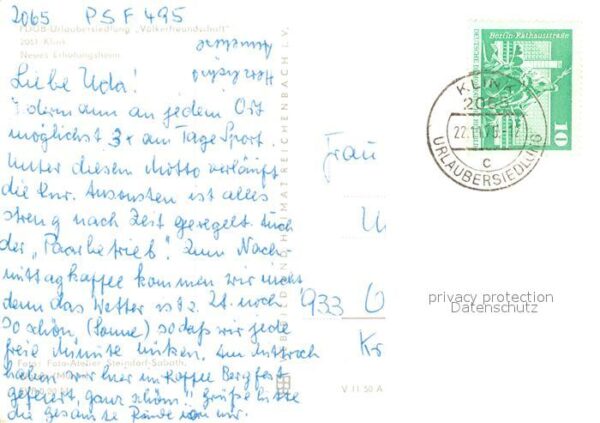 2065 PSF 495
FDGB-Urlaubersiedlung „Völkerfreundschaft"
2061 Klink
Neues Erholungsheim
Herzliche
Annelise
Liebe Uda!
Jedermann an jedem Ort
möglichst 3x am Tage Sport.
Unter diesem Motto verläuft
die Kur. Ansonsten ist alles
streng nach Zeit geregelt auch
der „Paarbetrieb". Zum Nach-
mittagkaffee kommen wir nicht
denn das Wetter ist z. Zt. noch
so schön (Sonne) sodaß wir jede
freie Minute nützen. Am Mittwoch
haben wir hier im Kaffee Bergfest
gefeiert, ganz schön!! Grüße bitte
die gesamte Runde von mir.
Foto: Foto-Atelier Steindorf-Sabath,
BILD UND HEIMAT REICHENBACH i. V.
V 11 50 A
Berlin, Rathausstraße
10
KLINK
2061
22.11.76
c
URLAUBERSIEDLUNG
Frau
U
933 O
Kr
privacy protection
Datenschutz